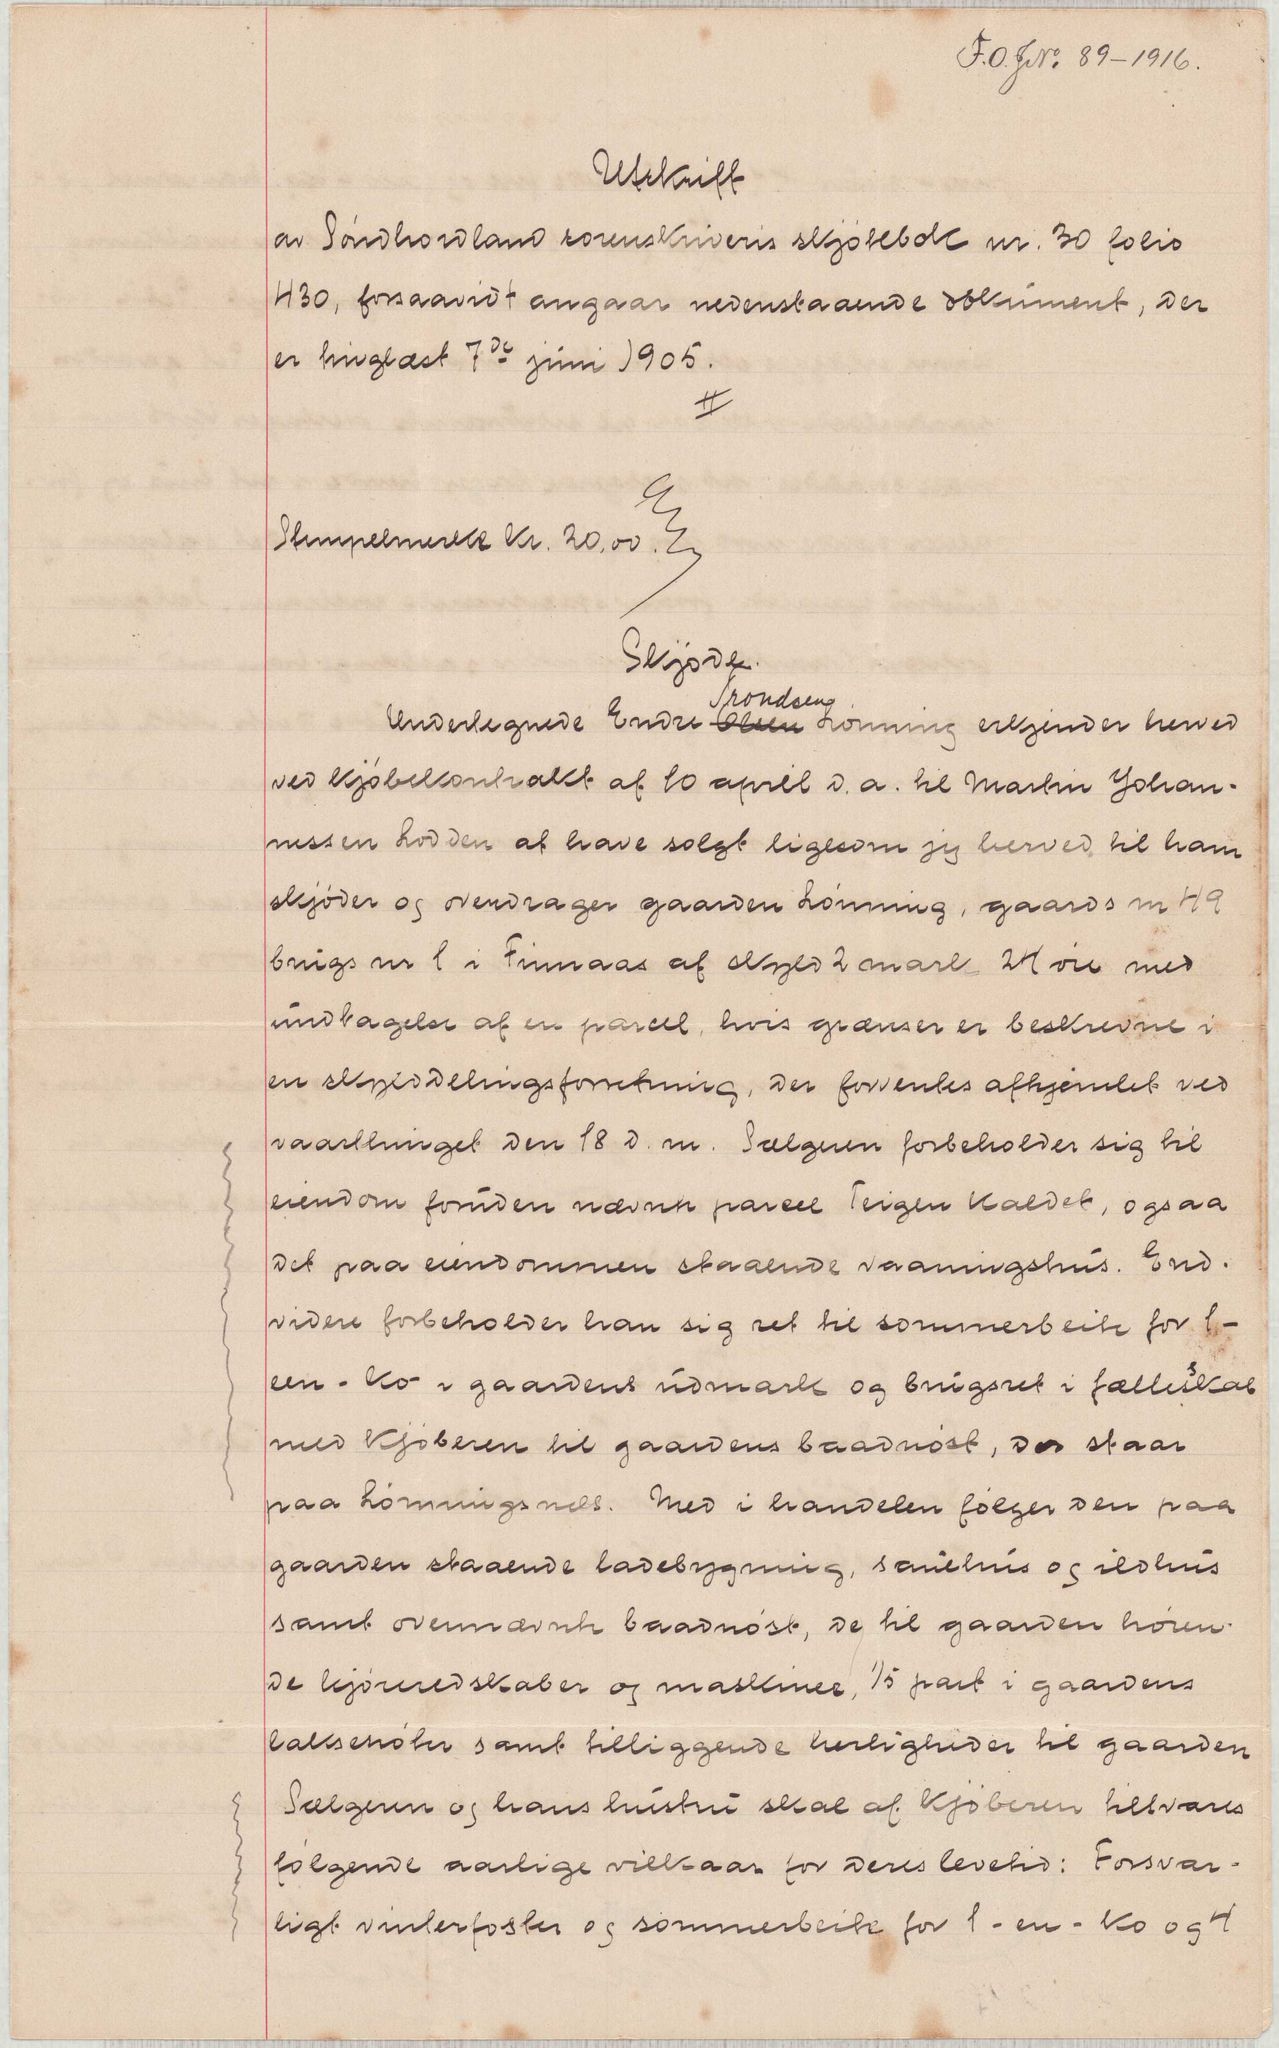 F.O.J.No. 89-1916.
Utskrift
av Söndhordland sorenskriveris skjötebok nr. 30 folio
430, forsaavidt angaar nedenstaaende dokument, der
er tinglæst 7de juni 1905.
Stempelmerke Kr. 20,00.
Skjøde.
Trondsen
Undertegnede Endre Olsen Lönning erkjender herved
ved kjöbekontrakt af 10 april d.a. til Martin Johan-
nessen Lodden at have solgt ligesom jeg herved til ham
skjöder og overdrager gaarden Lönning, gaards nr 49
brugs nr 1 i Finnaas af skyld 2 mark 24 öre med
undtagelse af en parcel, hvis grænser er beskrevne i
en skylddelingsforretning, der forventes afhjemlet ved
vaarthinget den 18 d.m. Sælgeren forbeholder sig til
eiendom foruden nævnte parcel Teigen kaldet, ogsaa
det paa eiendommen staaende vaaningshus. End-
videre forbeholder han sig ret til sommerbeite for 1-
een - ko i gaardens udmark og brugsret i fællesskab
med kjöberen til gaardens baadnöst, der staar
paa Lönningsnes. Med i handelen fölger den paa
gaarden staaende ladebygning, sauehus og ildhus
samt ovennævnte baadnöst, de til gaarden hören-
de kjöreredskaber og maskiner, 1/5 part i gaardens
laksenöter samt tilliggende herligheder til gaarden
Sælgeren og hans hustru skal af kjöberen tilsvares
fölgende aarlige vilkaar for deres levetid: Forsvar-
ligt vinterfoster og sommerbeite for 1 - en - ko og 4